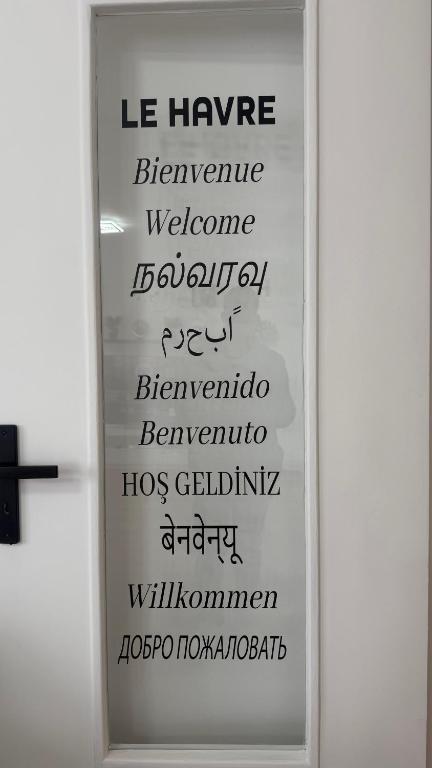 LE HAVRE
Bienvenue
Welcome
நல்வரவு
اًبحرم
Bienvenido
Benvenuto
HOŞ GELDİNİZ
बेनवेन्‌यू
Willkommen
ДОБРО ПОЖАЛОВАТЬ